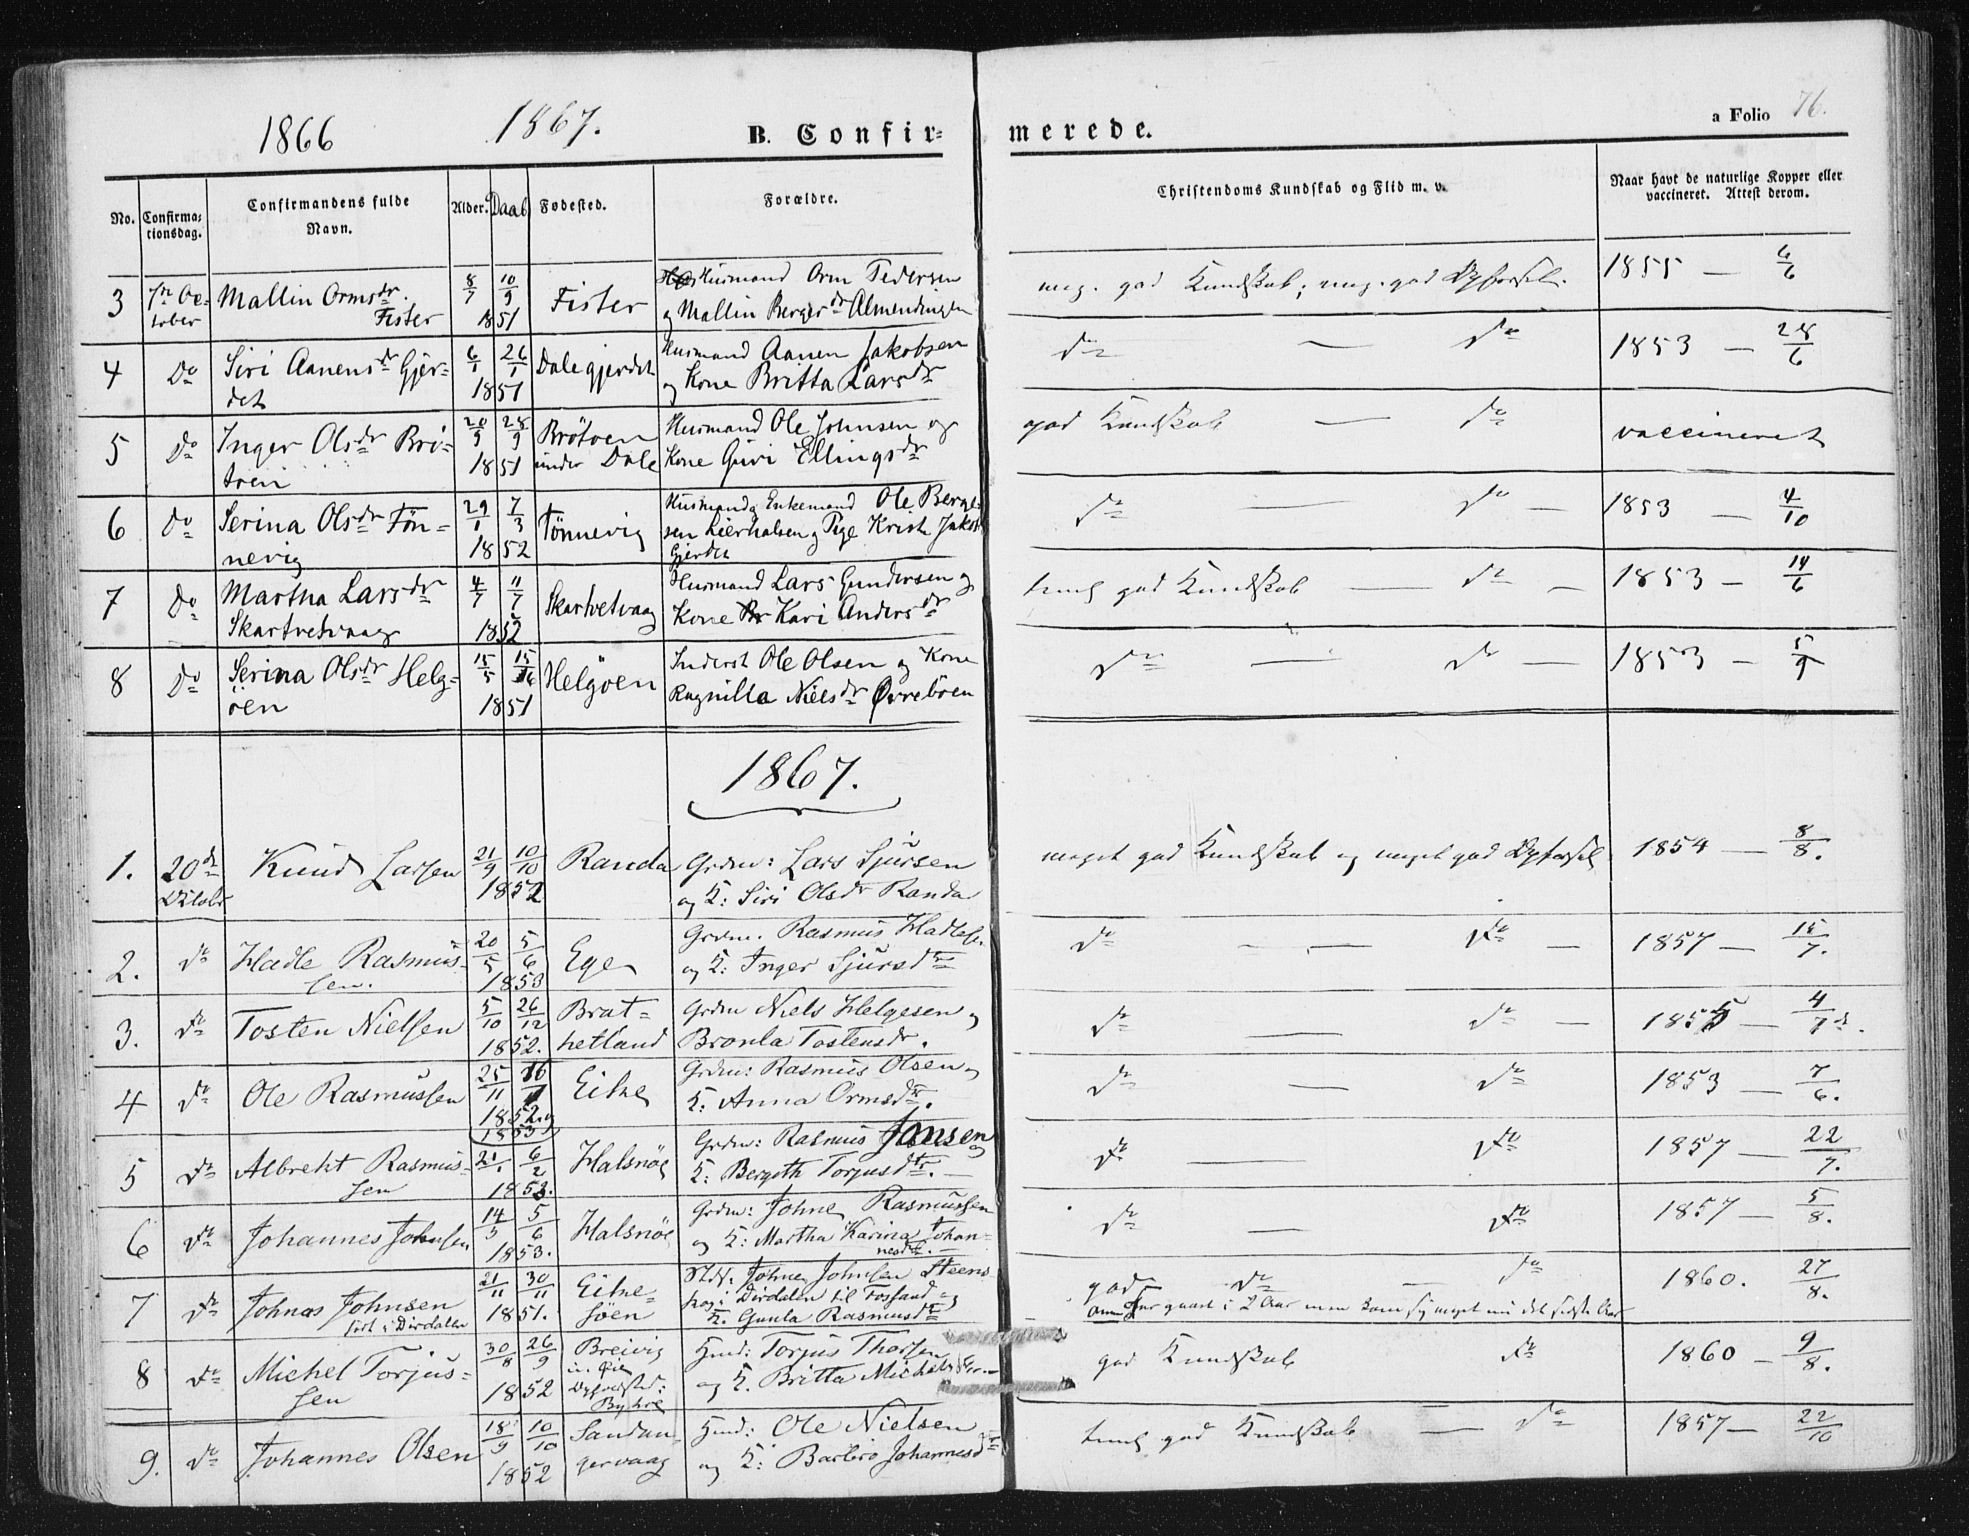 1866
1867.
B. Confirmerede.
a Folio 76.
No.
Confirmationsdag.
Confirmandens fulde Navn.
Alder.
Daab
Fødested.
Forældre.
Christendoms Kundskab og Flid m. v.
Naar havt de naturlige Kopper eller vaccineret. Attest derom.
3 7de October Mallin Ormsdr. Fister 8/7 10/9 1851 Fister Husmand Orm Pedersen og Mallin Bergesdr Almendingen meg. god Kundskab; meg. god Opførsel. 1855 — 6/6
4 Do Siri Aanensdr Gjerdet 6/1 26/1 1851 Dalegjerdet Husmand Aanen Jakobsen og Kone Britta Larsdr do — do 1853 — 28/6
5 Do Inger Olsdr Brötvein 20/9 28/9 1851 Brötveen under Dale Husmand Ole Johnsen og Kone Guri Ellingsdr god Kundskab — do vaccineret
6 Do Serina Olsdr Fönnevig 29/1 7/3 1852 Fönnevig Husmand og Enkemand Ole Bergesen og Pige Gjerdet do — do 1853 — 4/10
7 Do Martha Larsdr Skartvetvaag 4/7 11/7 1852 Skartvetvaag Husmand Lars Gundersen og Kone Kari Andersdr temml god Kundskab — do — 1853 — 14/6
8 Do Serina Olsdr Helgöen 15/5 15/6 1851 Helgöen Inderst Ole Olsen og Kone Ragnilla Nielsdr Øvreböen do — do — 1853 — 5/9
1867.
1. 20de Oktobr Knud Larsen 21/9 10/10 1852 Randa Grdm: Lars Sjursen og K: Siri Olsdr Randa meget god Kundskab og meget god Opførsel 1854 — 8/8.
2. do Hadle Rasmussen. 20/5 5/6 1853 Ege Grdm. Rasmus Hadles. og K: Inger Sjursdtr do — do — 1857 — 15/7.
3. do Tosten Nielsen 5/10 26/12 1852. Brathetland Grdm Niels Helgesen og Bronla Tostensdr. do — do — 1855 — 4/7
4 do Ole Rasmussen 25/11 16/1 1852 og 1853 Eike Grdm: Rasmus Olsen og K: Anna Ormsdtr. do — do 1853 — 7/6.
5 do Albrekt Rasmussen 21/1 6/2 1853. Halsnöe Grdm: Rasmus Jansen og K: Bergoth Torjusdtr. — do — do 1857 — 22/7.
6 do Johannes Johnsen 14/5 5/6 1853. Halsnöe Grdm: Johne Rasmussen og K: Martha Karina Johannesdtr. — do — do 1857 — 5/8.
7 do Johnas Johnsen født i Dirdalen 21/11 30/11 1851. Eikesöen Johne Johnsen Steens i Dirdalen til Fossand og K. Gunla Rasmusdtr god do — do 1860. 27/8.
i 2 Aar men kom sig meget nu det sidste Aar
8 do Michel Torjussen 30/8 26/9 1852 Breivig Hmd: Torjus Thorsen og K. Britta Michelsdtr. — god Kundskab do 1860 — 9/8.
9. do Johannes Olsen 18/9 10/10 1852 Sandangervaag Hmd: Ole Nielsen og K: Barbro Johannesdtr temml god Kundskab — do — 1857 — 22/10